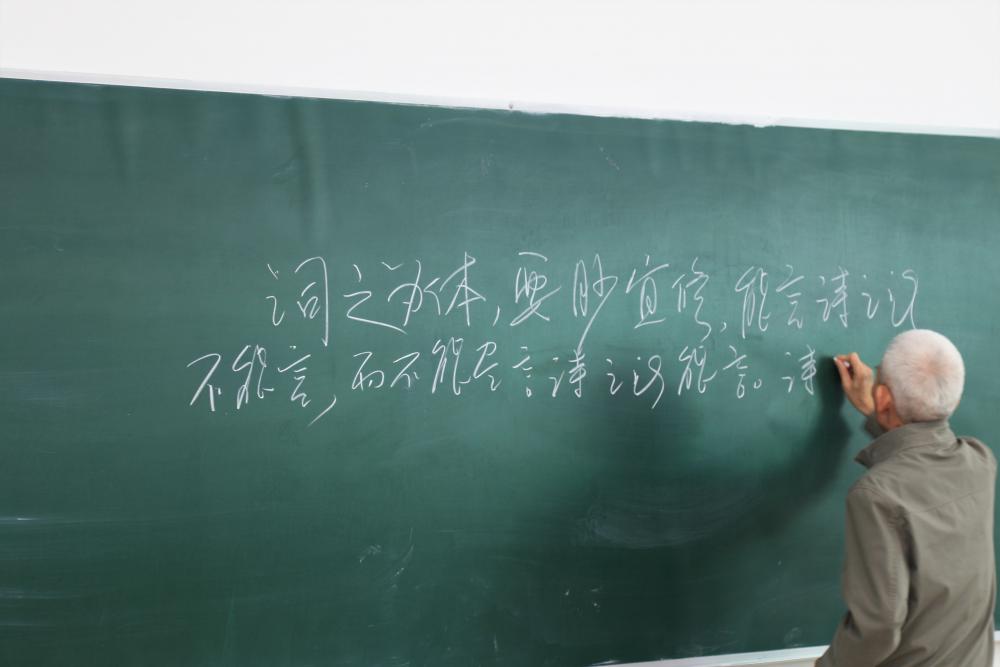 词之为体,要眇宜修,能言诗之所
不能言,而不能尽言诗之所能言。诗